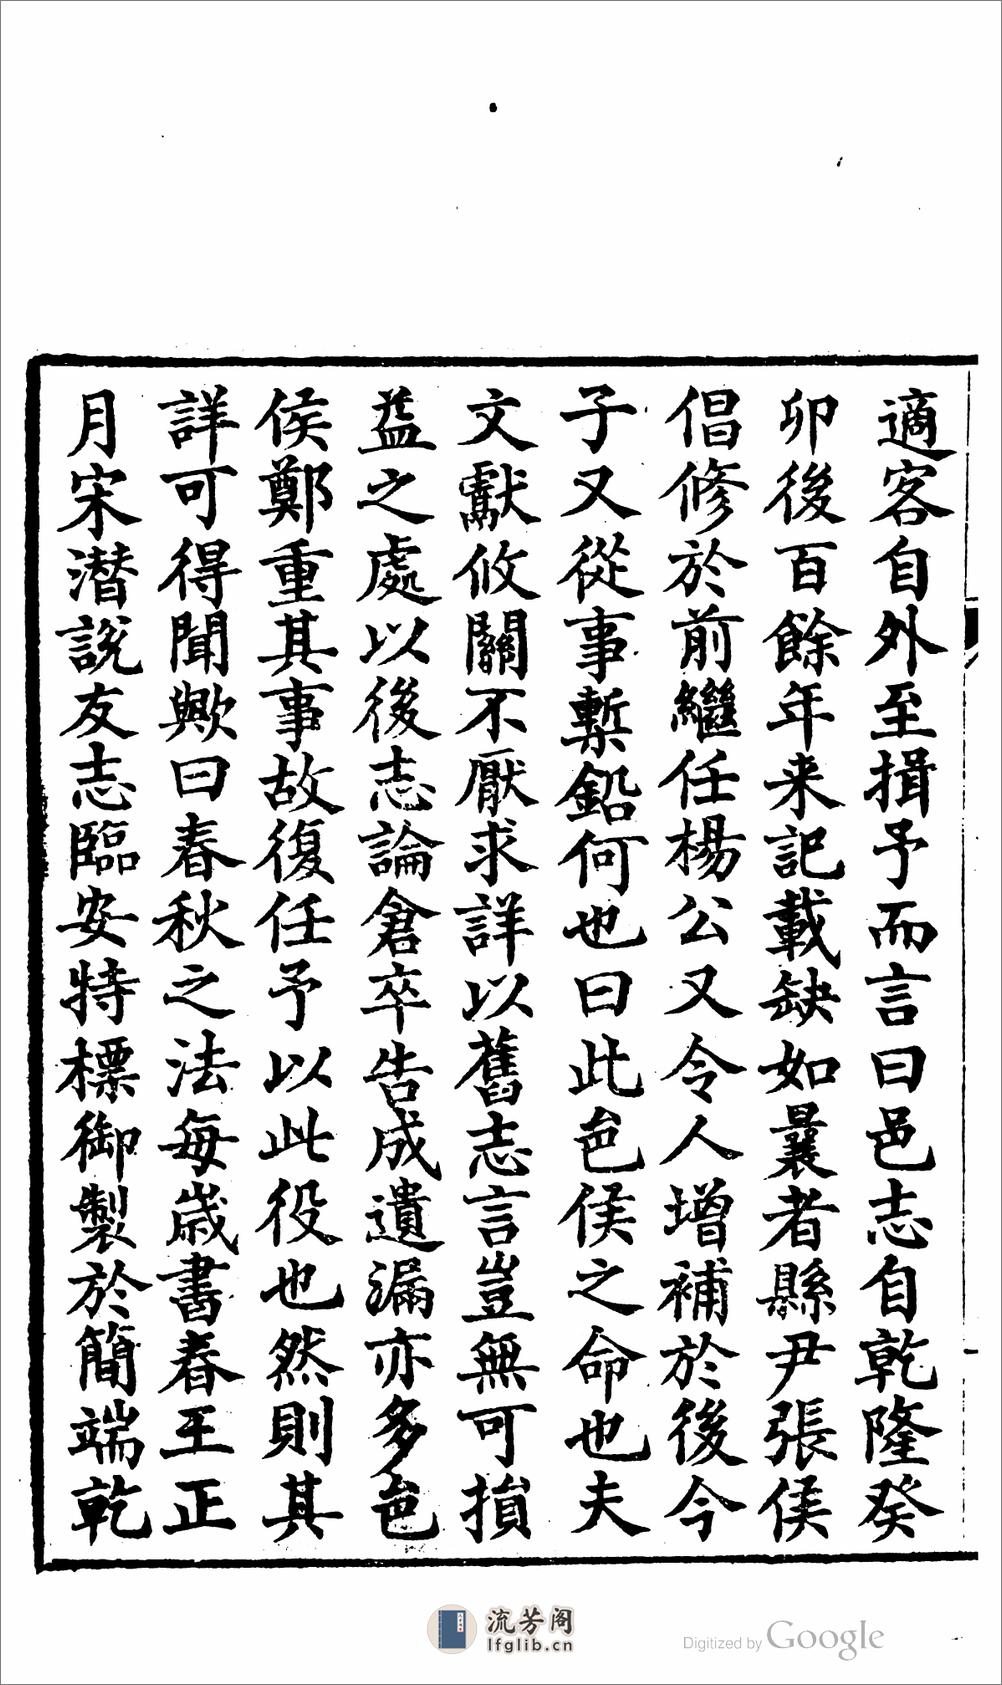 適客自外至揖予而言曰邑志自乾隆癸
卯後百餘年来記載缺如曩者縣尹張侯
倡修於前繼任楊公又令人增補於後今
子又從事槧鉛何也曰此邑侯之命也夫
文獻攸關不厭求詳以舊志言豈無可損
益之處以後志論倉卒告成遺漏亦多邑
侯鄭重其事故復任予以此役也然則其
詳可得聞歟曰春秋之法每歲書春王正
月宋潛說友志臨安特標御製於簡端乾
流芳阁
lfglib.cn
Digitized by Google